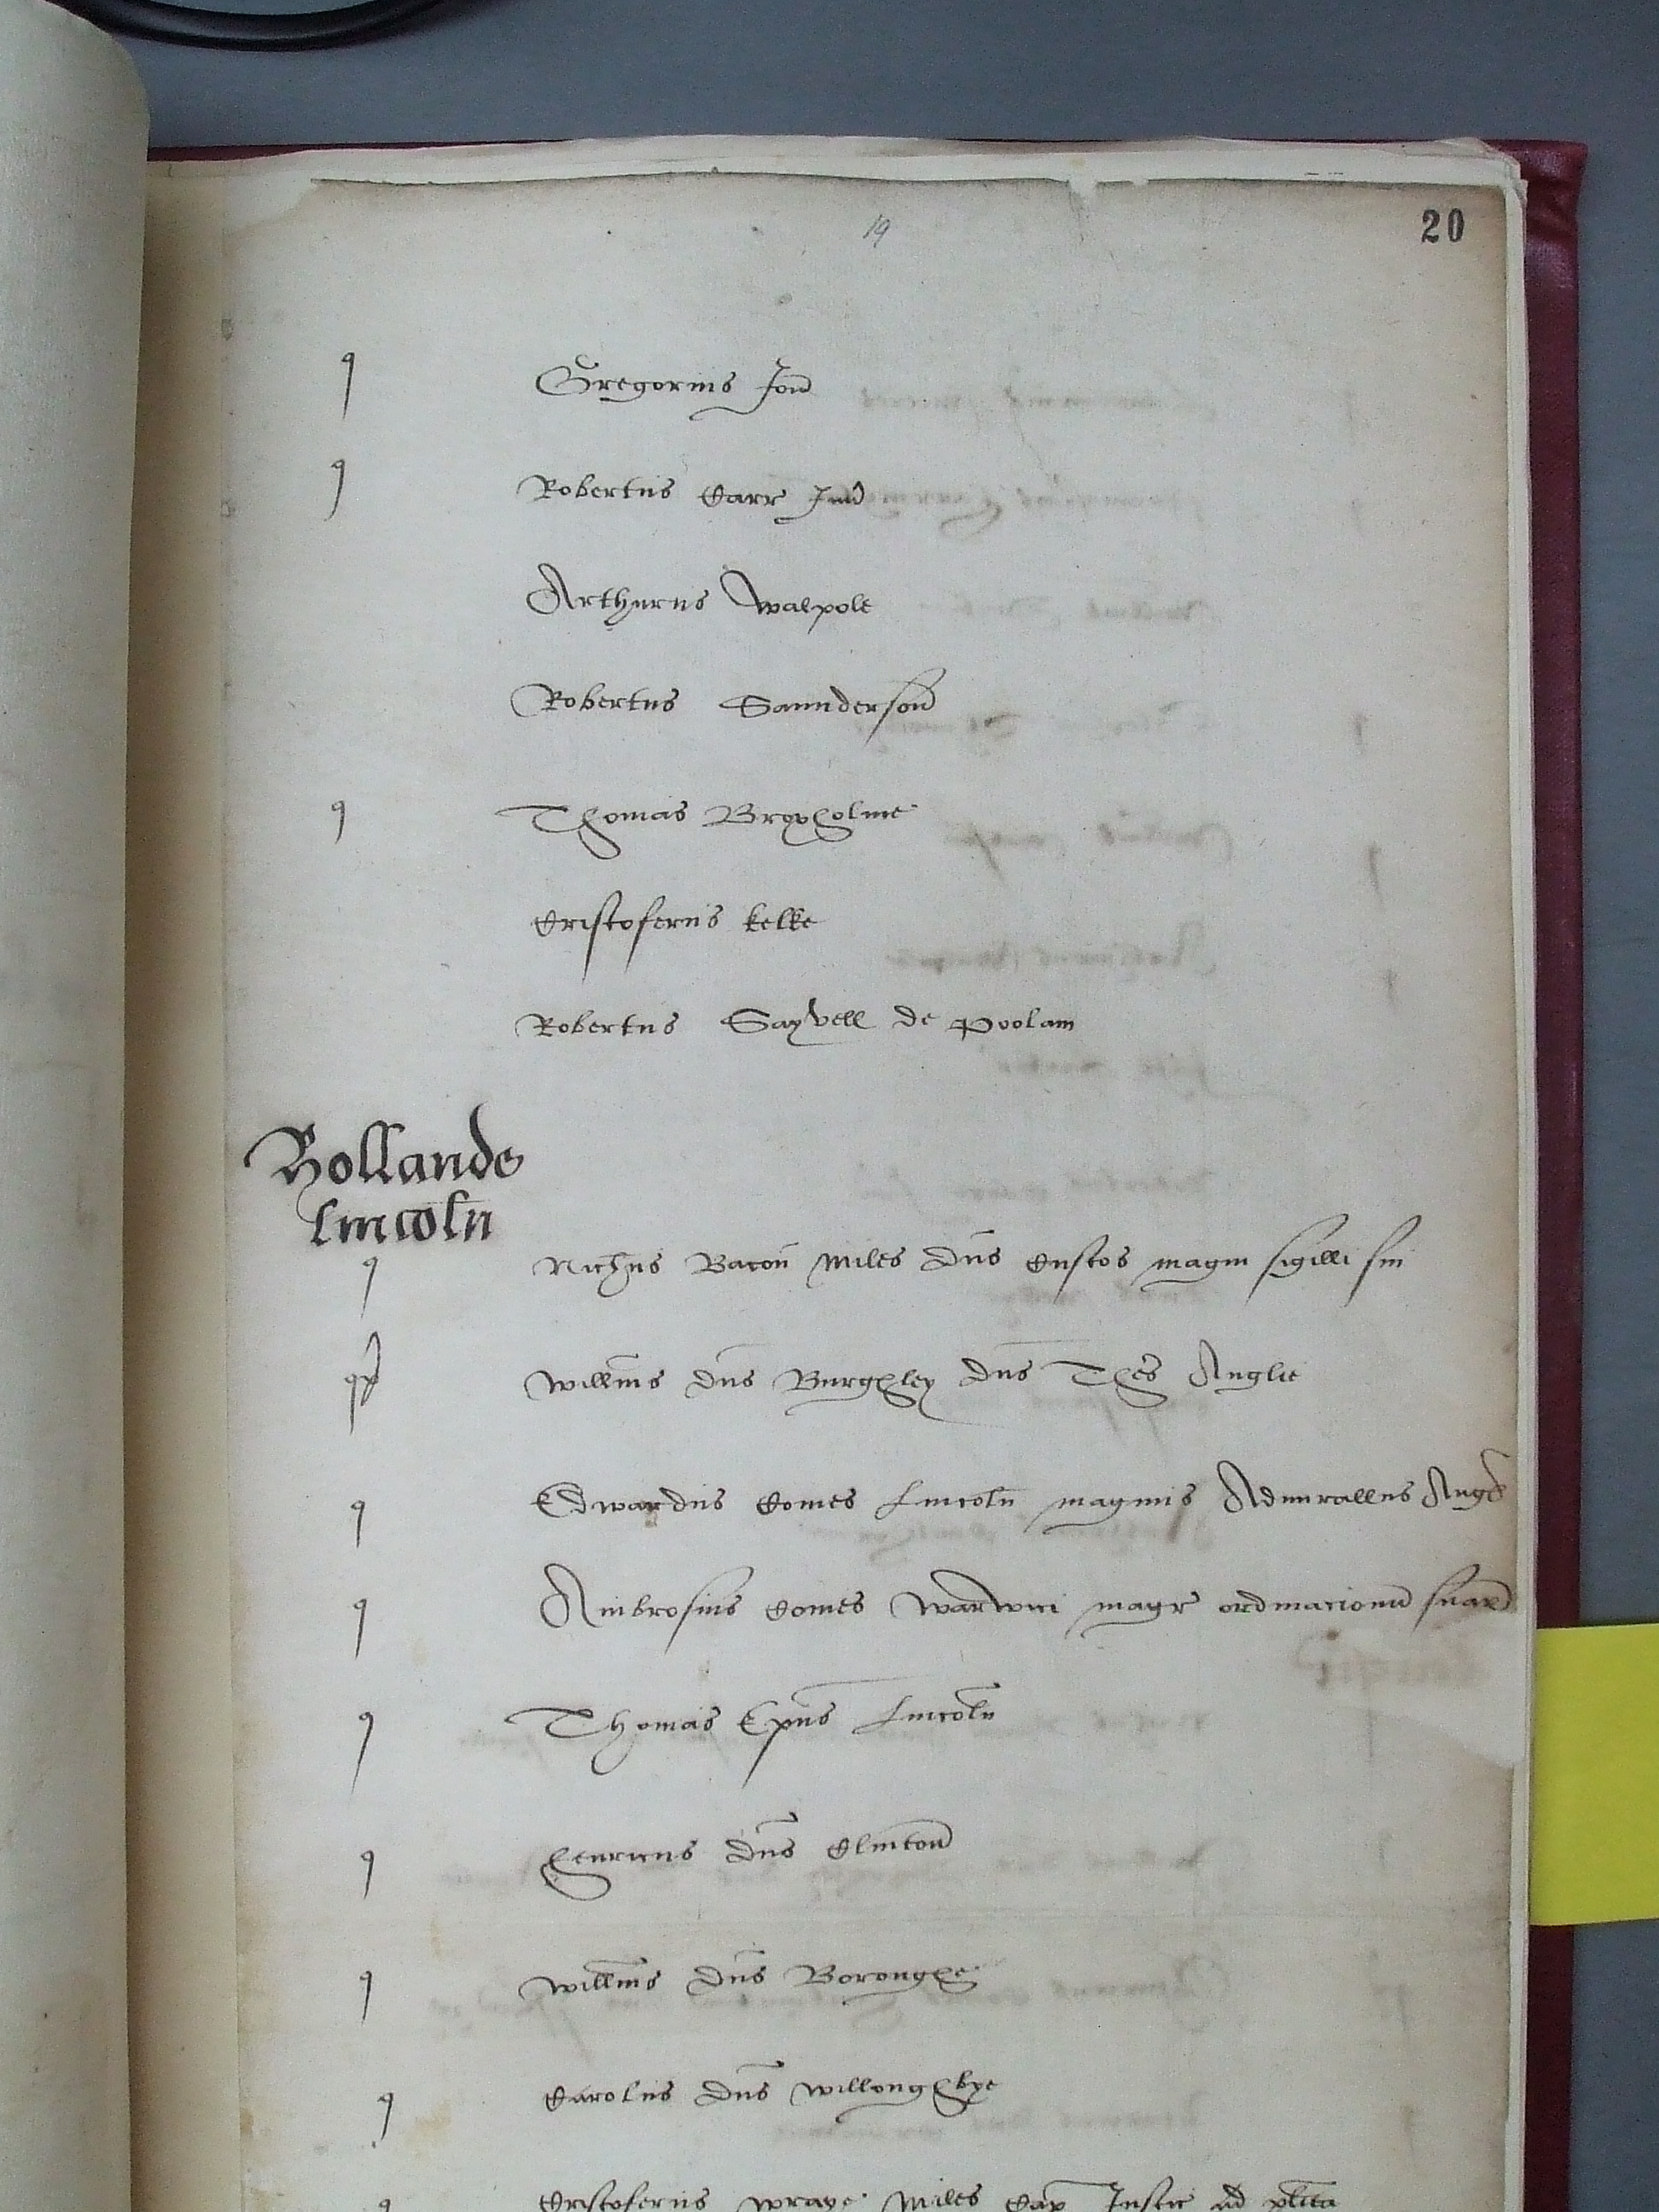 19
20
q Gregorius Ion
q Robertus Carr Iun
Arthurus Walpole
Robertus Saunderson
q Thomas Broxholme
Cristoferus kelke
Robertus Sayvell de Poolam
Hollande
Lincoln
q Nichus Bacon Miles Dns Custos magni sigilli sui
Willms Dns Burghley Dns Thes Anglie
q Edwardus Comes Lincoln magnus Admirallus Angl
q Ambrosius Comes Warwici magr ordinacionu suar
q Thomas Epus Lincoln
q Henricus Dns Clinton
q Willms Dns Boroughe
q Carolus Dns Willoughbye
q Cristoferus Wraye Miles Cap Iustic ad plita